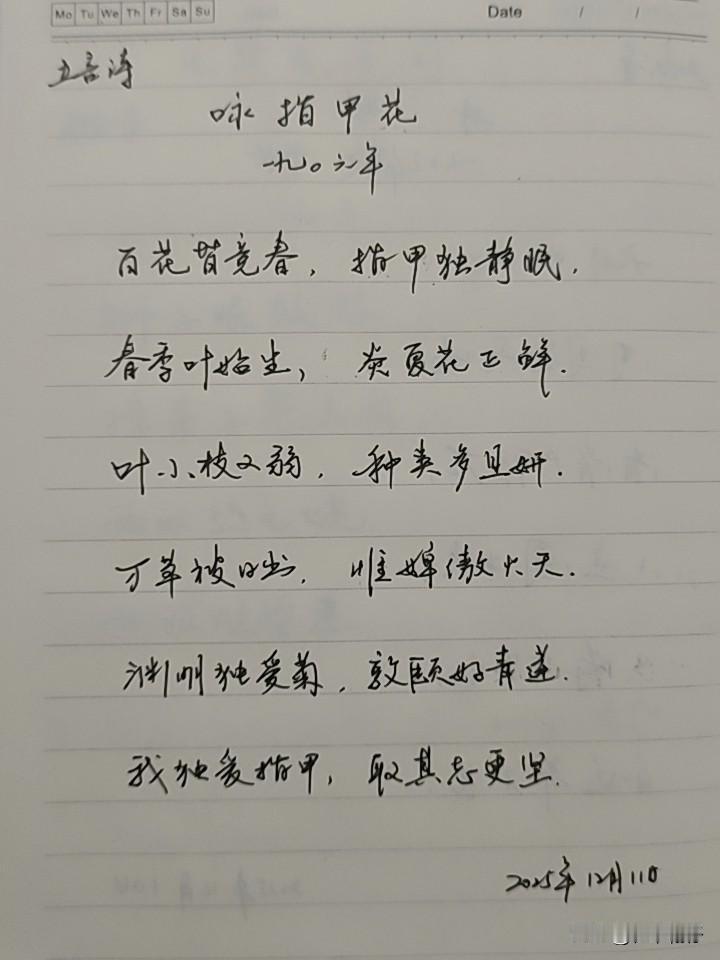 Mo Tu We Th Fr Sa Su Date / /
五言诗
咏指甲花
一九〇六年
百花皆竞春，指甲独静眠.
春季叶始生，炎夏花正鲜.
叶小枝又弱，种类多且妍.
万草被日出，惟婢傲火天.
渊明独爱菊，敦颐好青莲.
我独爱指甲，取其志更坚.
2025年12月11日